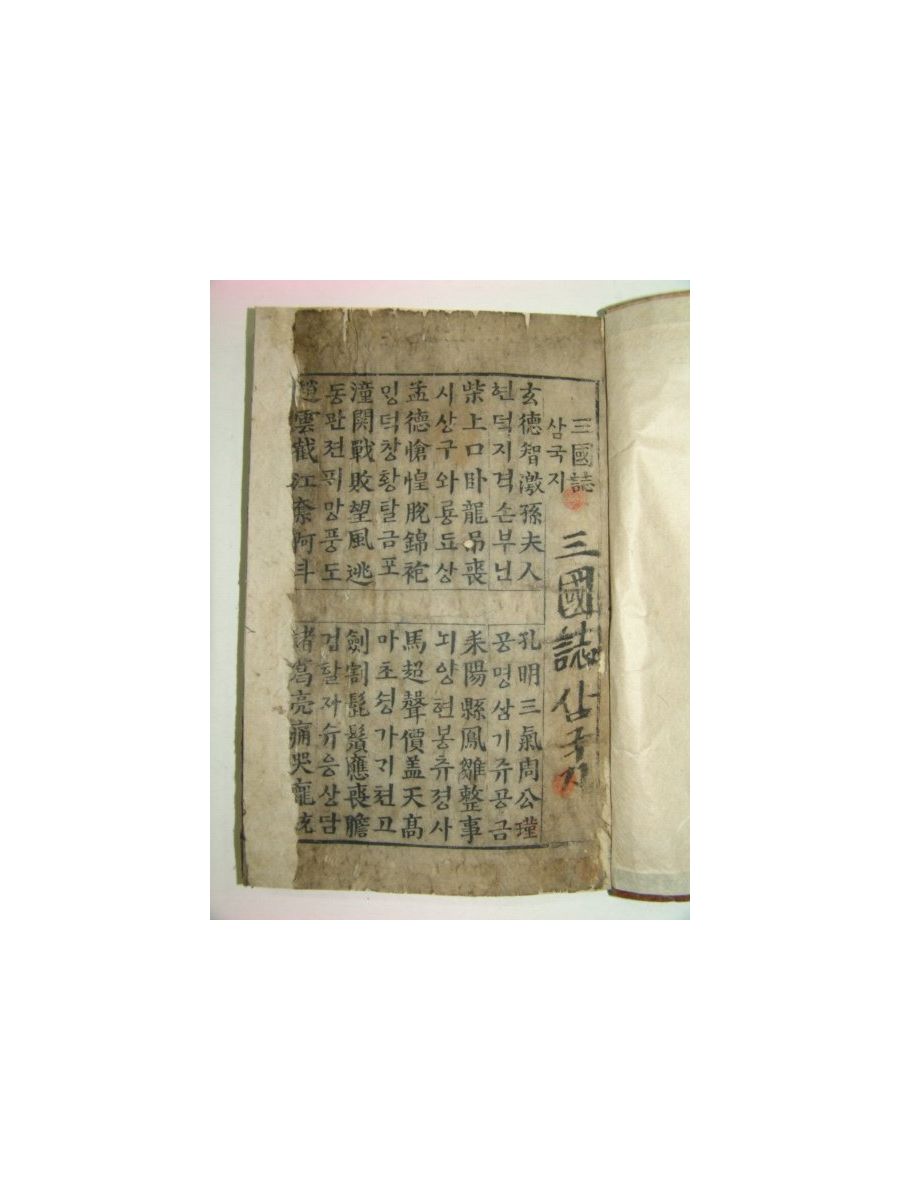 三國誌
삼국지
三國誌 삼국지
玄德智激孫夫人
孔明三氣周公瑾
현덕지격손부닌
공명삼기쥬공금
柴上口臥龍吊喪
耒陽縣鳳雛整事
시상구와룡됴상
뇌양현봉츄졍사
孟德愴惶脫錦袍
馬超聲價盖天髙
밍덕창황탈금포
마초셩가기쳔고
潼関戰敗望風逃
劍割髭鬚應喪膽
동관젼픠망풍도
검할자슈응상담
趙雲截江奪阿斗
諸葛亮痛哭龐統